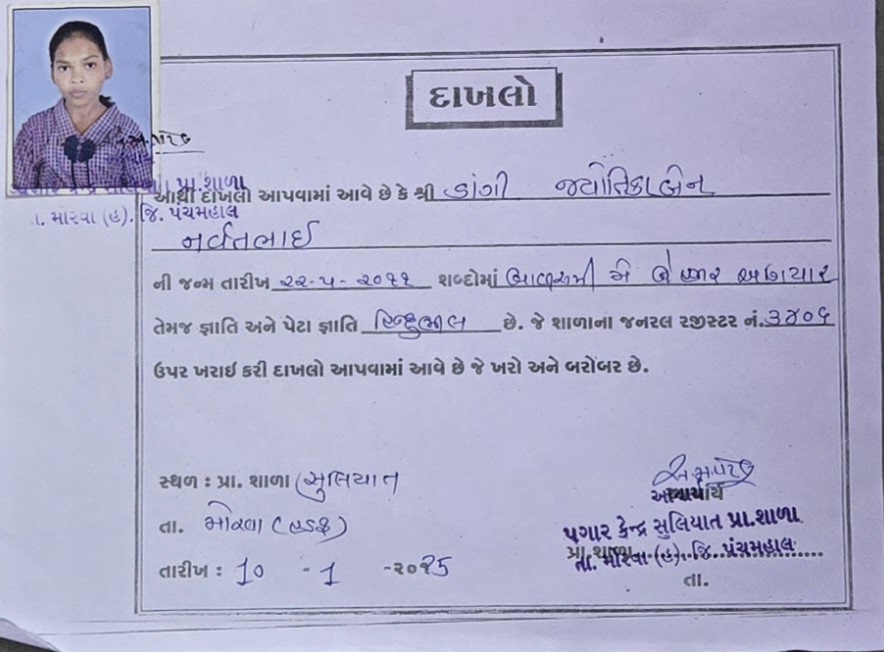 દાખલો
અ.મ.પટેલ
પ્રા.શાળા
આથી દાખલો આપવામાં આવે છે કે શ્રી ડાંગી જ્યોતિકાબેન
તા. મોરવા (હ). જિ. પંચમહાલ
નર્વતભાઈ
ની જન્મ તારીખ ૨૨-૫-૨૦૧૧ શબ્દોમાં બાવીસમી મે બે હજાર અગિયાર
તેમજ જ્ઞાતિ અને પેટા જ્ઞાતિ હિન્દુ ભીલ છે. જે શાળાના જનરલ રજીસ્ટર નં. ૩૪૦૬
ઉપર ખરાઈ કરી દાખલો આપવામાં આવે છે જે ખરો અને બરોબર છે.
સ્થળ : પ્રા. શાળા સુલિયાત
અ.મ.પટેલ
આચાર્ય
તા. મોરવા (હડફ)
પગાર કેન્દ્ર સુલિયાત પ્રા.શાળા
પ્રા.શાળા
તા. મોરવા (હ). જિ. પંચમહાલ
તારીખ : 10 - 1 -૨૦25
તા.